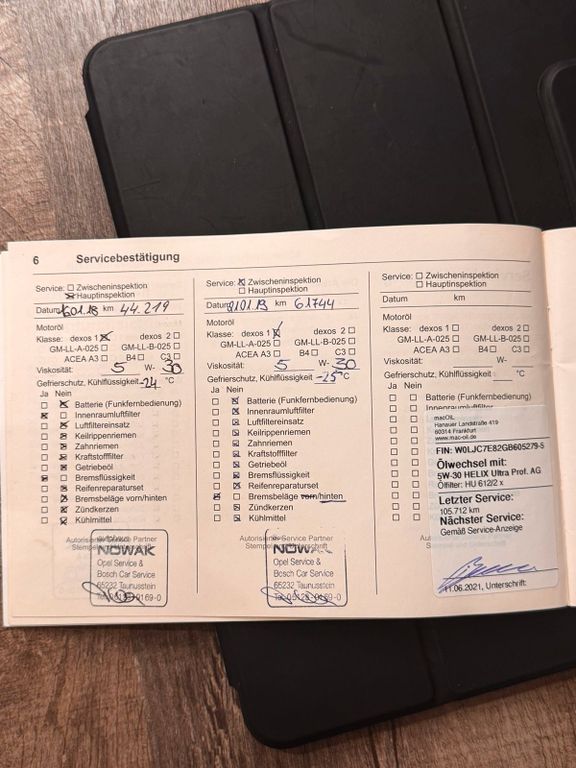 6 Servicebestätigung
Service: Zwischeninspektion
Hauptinspektion
Datum km 44.219
Motoröl
Klasse: dexos 1 dexos 2
GM-LL-A-025 GM-LL-B-025
ACEA A3 B4 C3
Viskosität: 5 W- 30
Gefrierschutz, Kühlflüssigkeit -24 °C
Ja Nein
Batterie (Funkfernbedienung)
Innenraumluftfilter
Luftfiltereinsatz
Keilrippenriemen
Zahnriemen
Kraftstofffilter
Getriebeöl
Bremsflüssigkeit
Reifenreparaturset
Bremsbeläge vorn/hinten
Zündkerzen
Kühlmittel
Service Partner
Stempel
autohaus
NOWAK
Opel Service &
Bosch Car Service
65232 Taunusstein
Service: Zwischeninspektion
Hauptinspektion
Datum km 61744
Motoröl
Klasse: dexos 1 dexos 2
GM-LL-A-025 GM-LL-B-025
ACEA A3 B4 C3
Viskosität: 5 W- 30
Gefrierschutz, Kühlflüssigkeit -25 °C
Ja Nein
Batterie (Funkfernbedienung)
Innenraumluftfilter
Luftfiltereinsatz
Keilrippenriemen
Zahnriemen
Kraftstofffilter
Getriebeöl
Bremsflüssigkeit
Reifenreparaturset
Bremsbeläge vorn/hinten
Zündkerzen
Kühlmittel
Service Partner
NOWAK
Opel Service &
Bosch Car Service
65232 Taunusstein
Service: Zwischeninspektion
Hauptinspektion
Datum km
Motoröl
Klasse: dexos 1 dexos 2
GM-LL-A-025 GM-LL-B-025
ACEA A3 B4 C3
Viskosität: W-
Gefrierschutz, Kühlflüssigkeit °C
Ja Nein
Batterie (Funkfernbedienung)
Innenraumluftfilter
macOIL
Hanauer Landstraße 419
60314 Frankfurt
www.mac-oil.de
FIN: W0LJC7E82GB605279-5
Ölwechsel mit:
5W-30 HELIX Ultra Prof. AG
Ölfilter: HU 612/2 x
Letzter Service:
105.712 km
Nächster Service:
Gemäß Service-Anzeige
11.06.2021, Unterschrift: